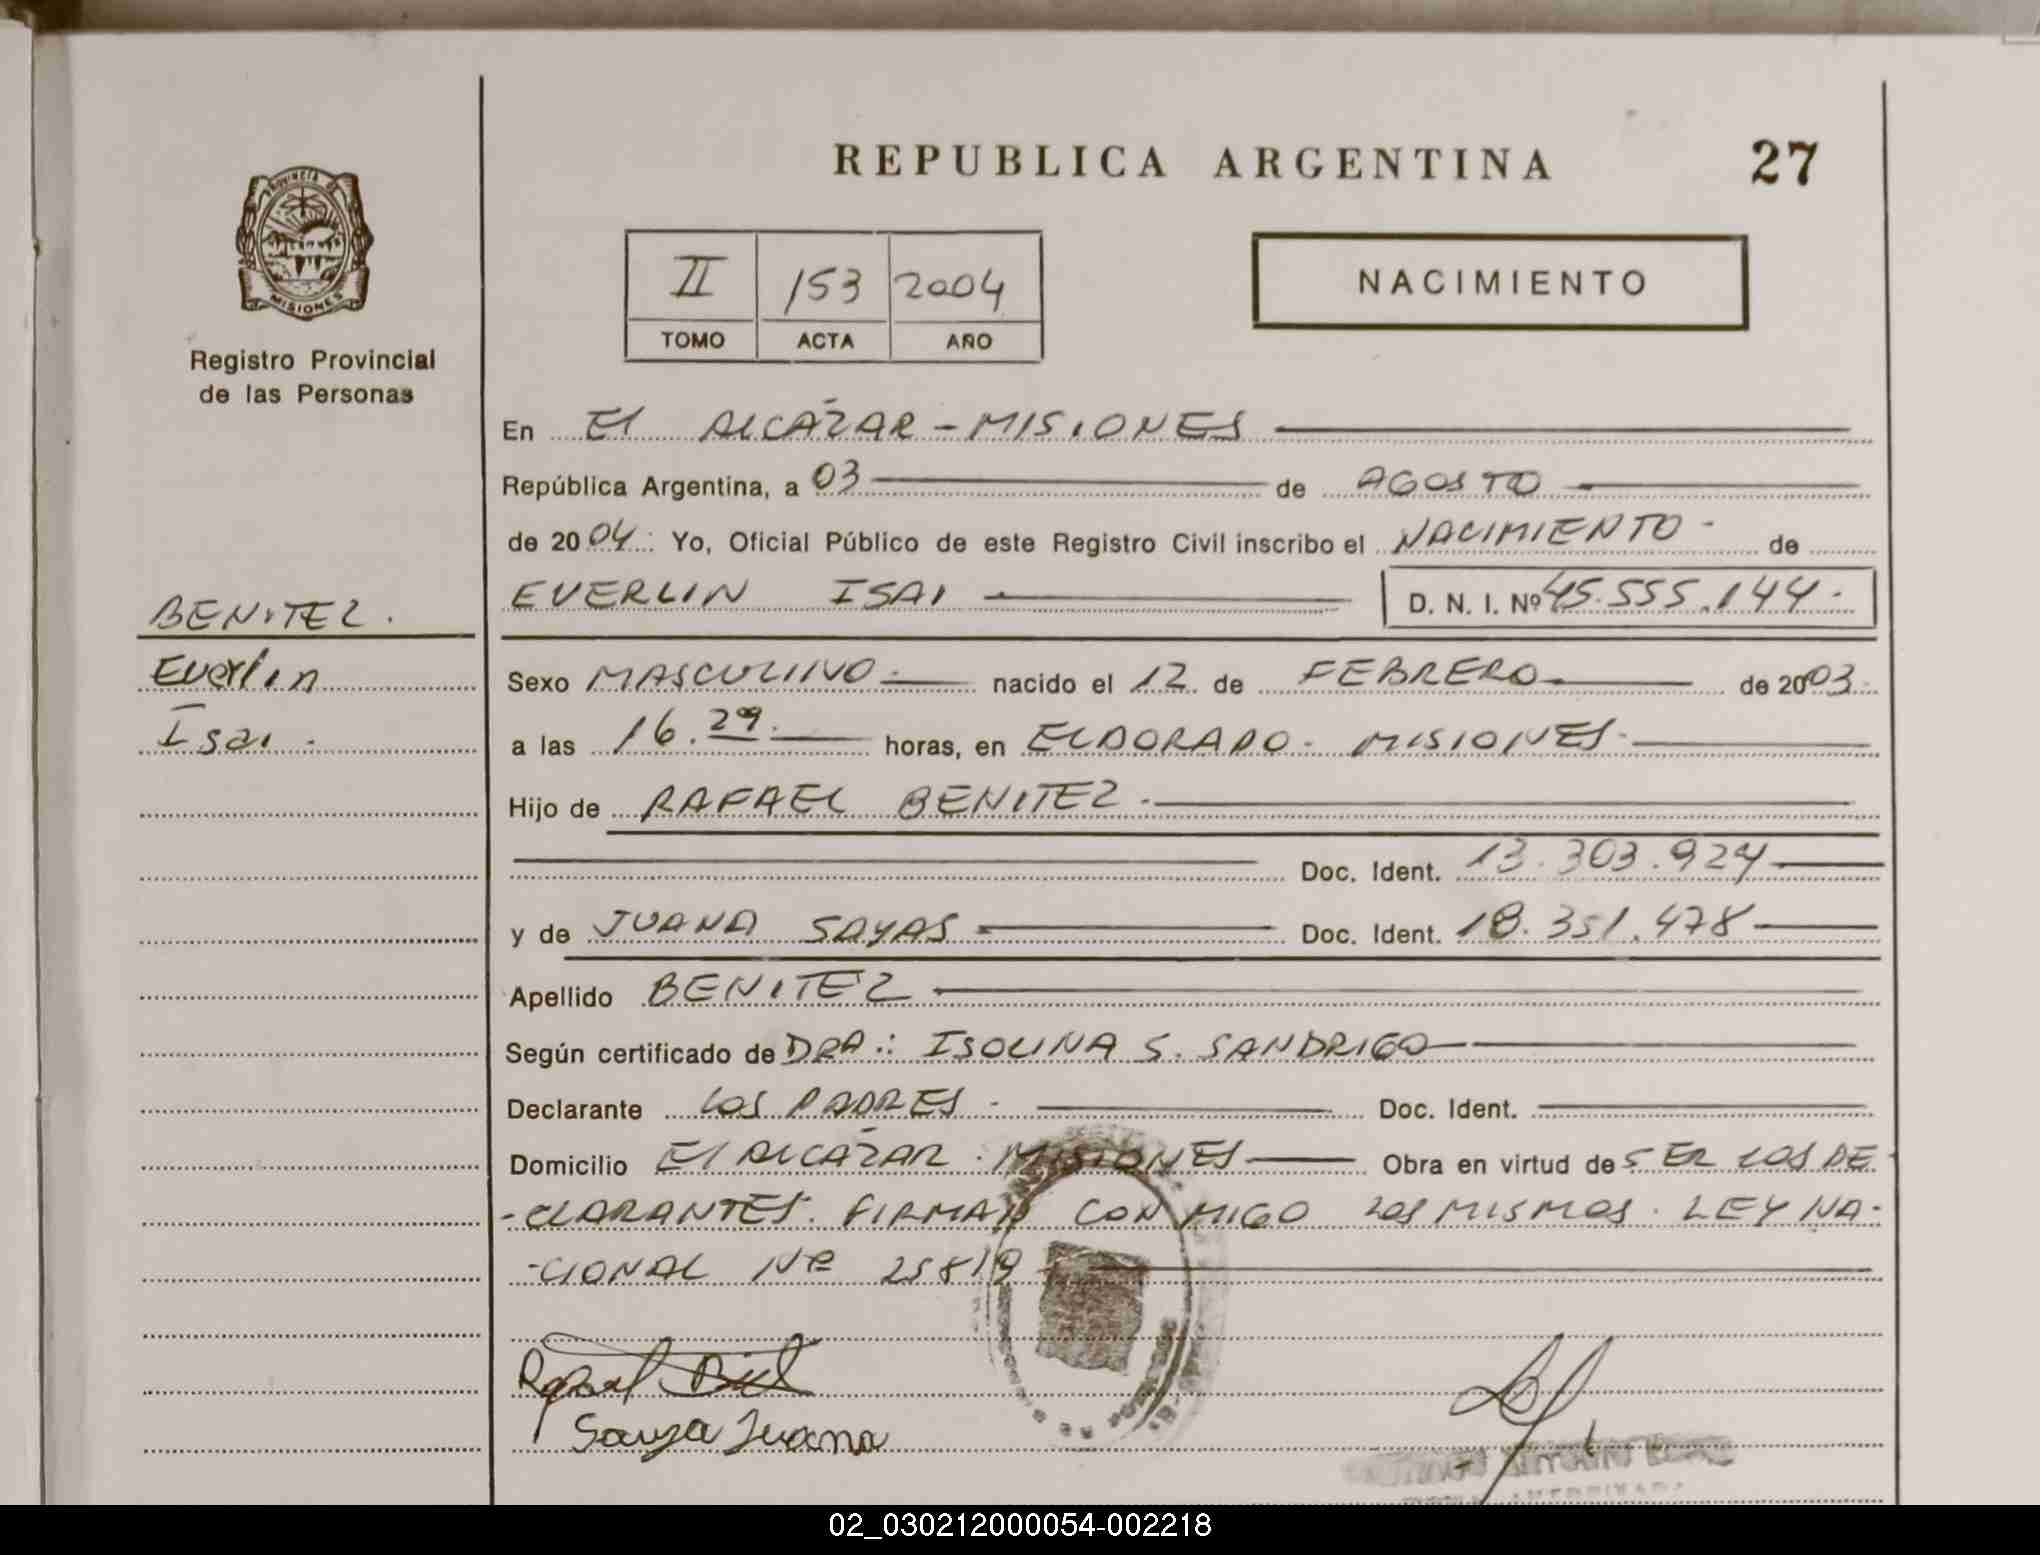 REPUBLICA ARGENTINA 27
PROVINCIA DE
MISIONES
Registro Provincial
de las Personas
II 153 2004
TOMO ACTA AÑO
NACIMIENTO
En El ALCÁZAR - MISIONES
República Argentina, a 03 de AGOSTO
de 2004. Yo, Oficial Público de este Registro Civil inscribo el NACIMIENTO - de
EVERLIN ISAI D. N. I. Nº 45.555.144.
BENITEZ.
Everlin
Isai.
Sexo MASCULINO. nacido el 12 de FEBRERO de 2003
a las 16.29. horas, en ELDORADO - MISIONES.
Hijo de RAFAEL BENITEZ.
Doc. Ident. 13.303.924
y de JUANA SAYAS Doc. Ident. 18.351.478
Apellido BENITEZ
Según certificado de DRA.: ISOLINA S. SANDRIGO
Declarante LOS PADRES - Doc. Ident.
Domicilio El ALCÁZAR - MISIONES Obra en virtud de SER LOS DE
-CLARANTES. FIRMAN CON MIGO LOS MISMOS. LEY NA-
-CIONAL Nº 25819
Sauza Juana
02_030212000054-002218